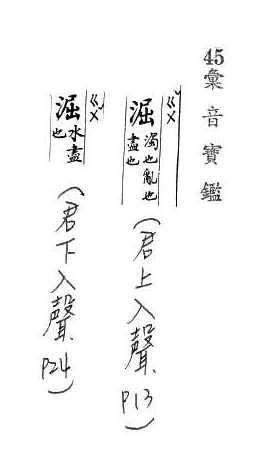 45彙音寶鑑
ㄍㄨˇ
淈 濁也亂也
盡也
(君上入聲、P13)
ㄍㄨˇ
淈 水盡
也
(君下入聲、P24)